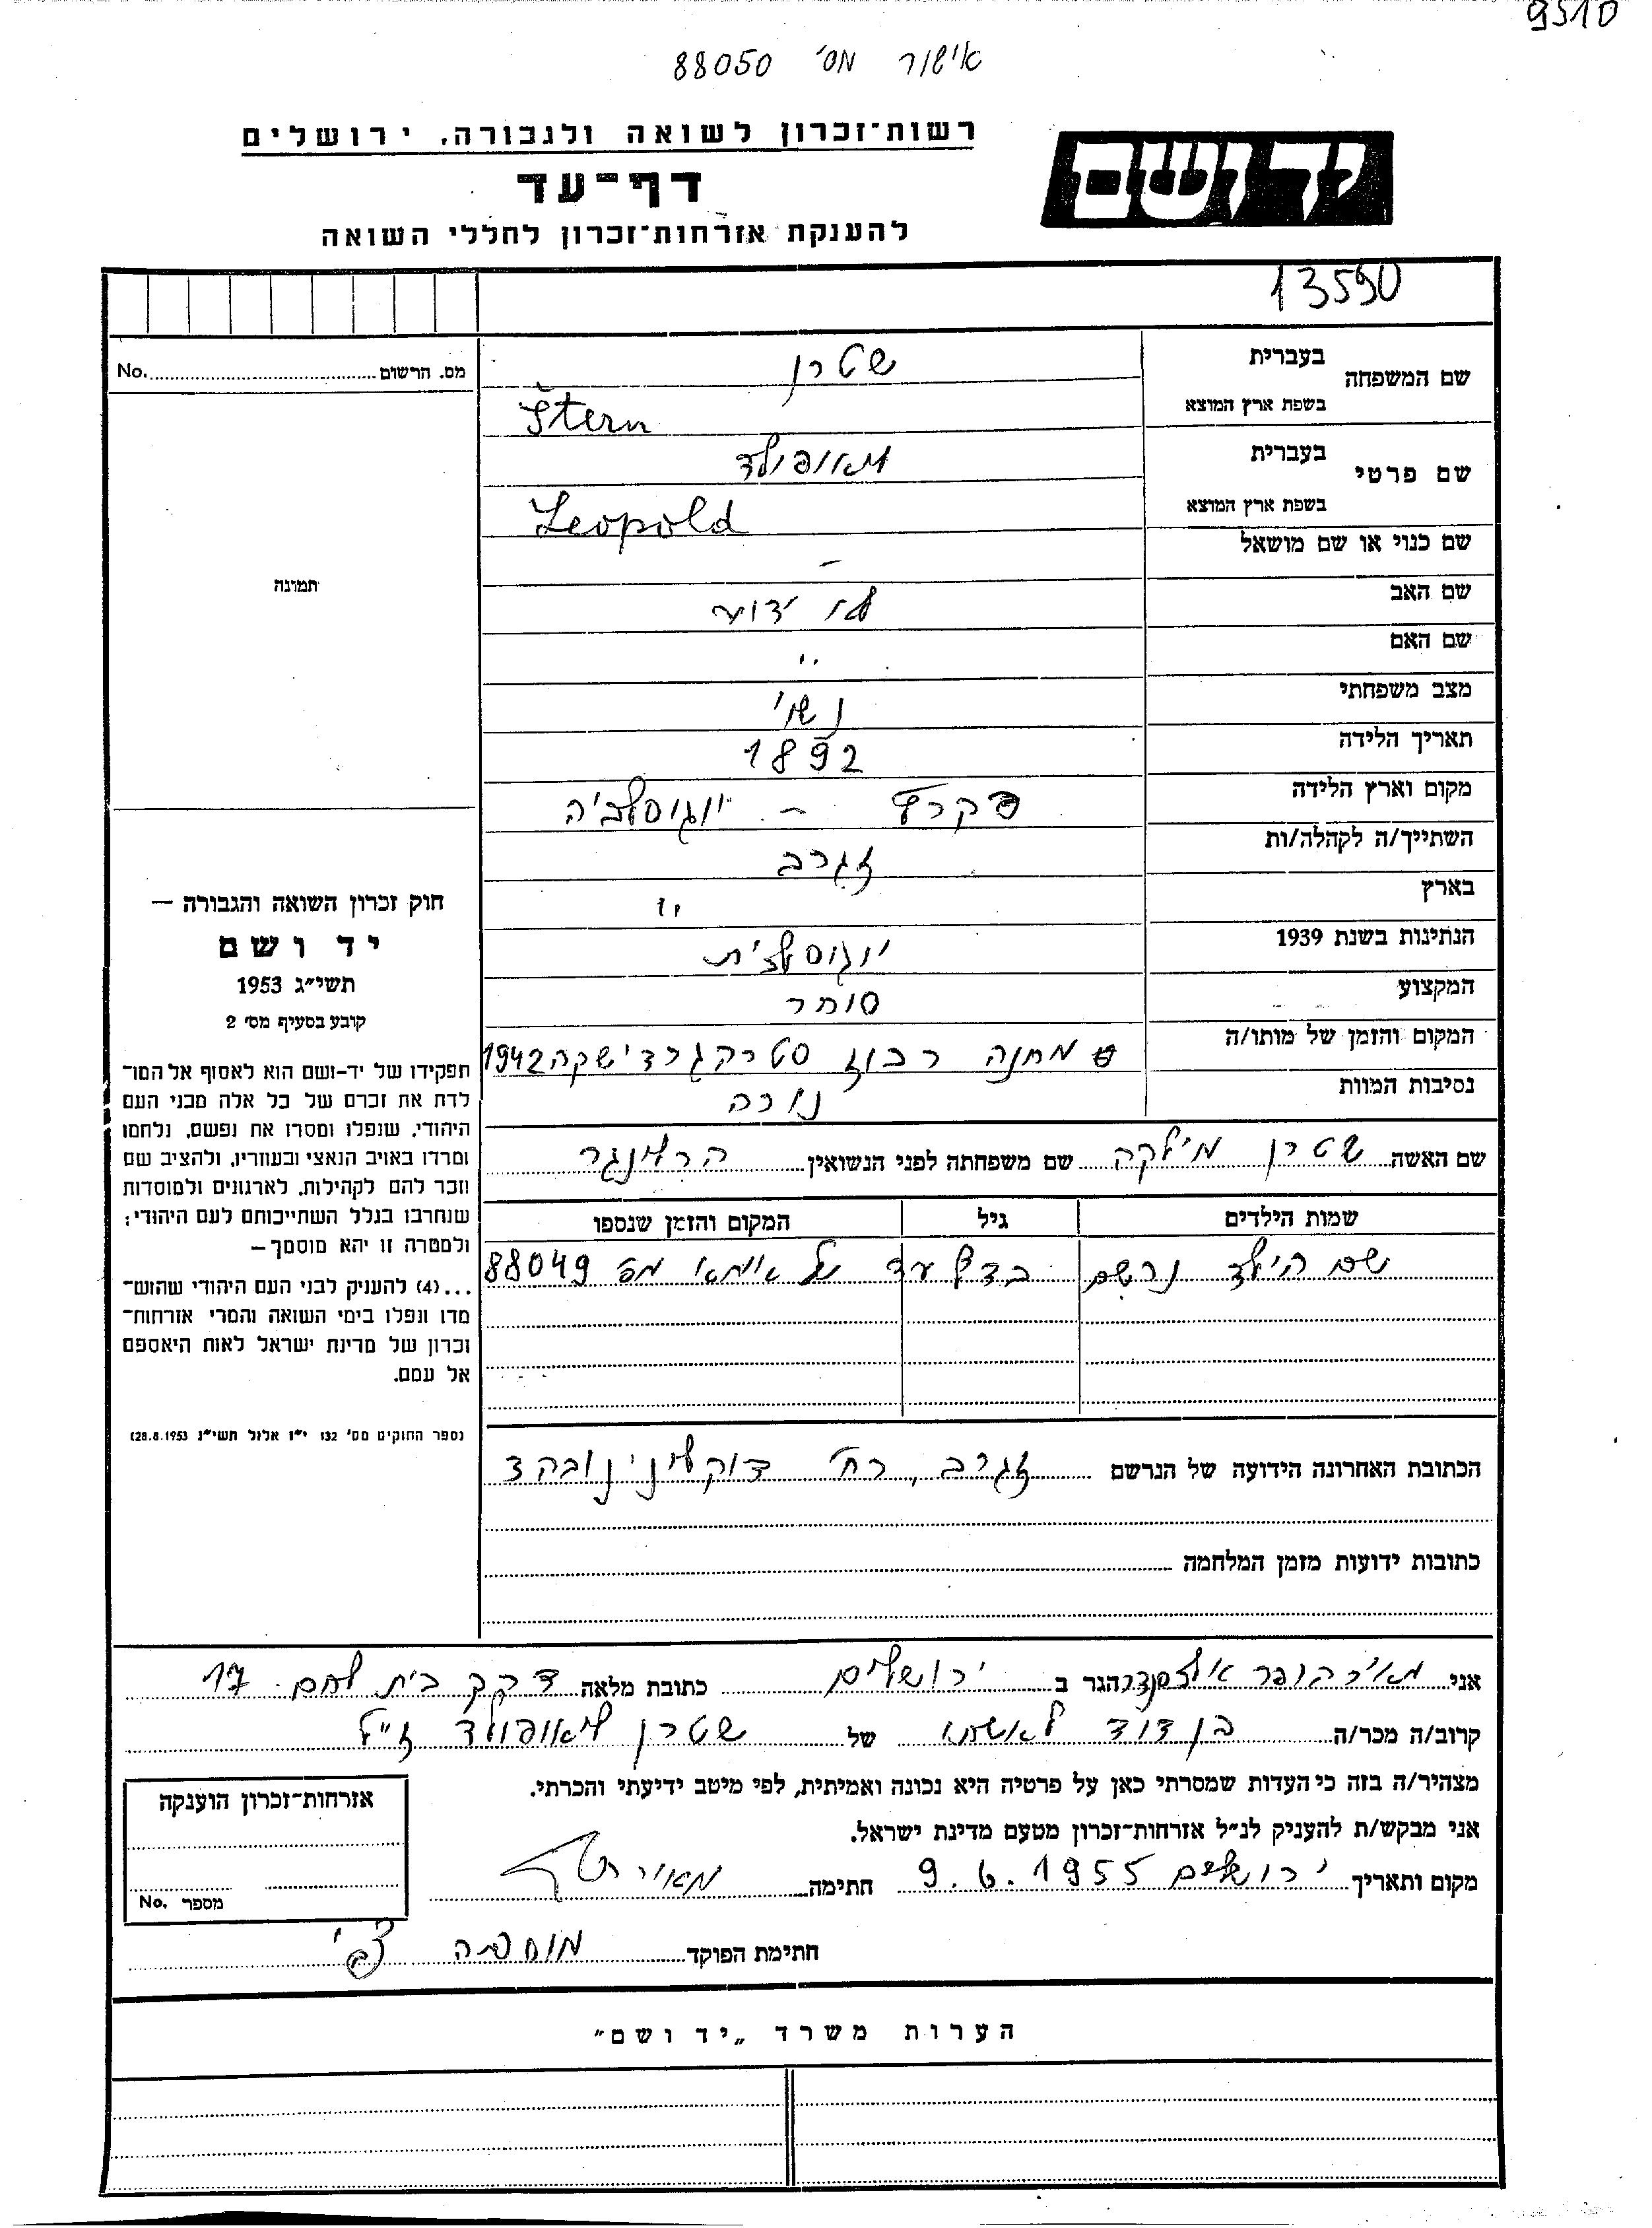 9510
אישור מס' 88050
יד ושם
רשות־זכרון לשואה ולגבורה, ירושלים
דף־עד
להענקת אזרחות־זכרון לחללי השואה
13590
מס. הרשום No.
שם המשפחה בעברית שטרן
בשפת ארץ המוצא Štern
שם פרטי בעברית ליאופולד
בשפת ארץ המוצא Leopold
שם כנוי או שם מושאל –
שם האב לא ידוע
שם האם "
מצב משפחתי נשוי
תאריך הלידה 1892
מקום וארץ הלידה – יוגוסלביה
השתייך/ה לקהלה/ות זגרב
בארץ "
הנתינות בשנת 1939 יוגוסלבית
המקצוע סוחר
המקום והזמן של מותו/ה מחנה רכוז סטרהגרדישקה 1942
נסיבות המוות נורה
שם האשה שטרן מילקה שם משפחתה לפני הנשואין
שמות הילדים גיל המקום והזמן שנספו
שם הילד נרשם בדף עד של אמא מס' 88049
הכתובת האחרונה הידועה של הנרשם זגרב, רח' 3
כתובות ידועות מזמן המלחמה
תמונה
חוק זכרון השואה והגבורה –
יד ושם
תשי״ג 1953
קובע בסעיף מס' 2
תפקידו של יד-ושם הוא לאסוף אל המו־
לדת את זכרם של כל אלה מבני העם
היהודי, שנפלו ומסרו את נפשם, נלחמו
ומרדו באויב הנאצי ובעוזריו, ולהציב שם
וזכר להם לקהילות, לארגונים ולמוסדות
שנחרבו בגלל השתייכותם לעם היהודי:
ולמטרה זו יהא מוסמך –
...(4) להעניק לבני העם היהודי שהוש־
מדו ונפלו בימי השואה והמרי אזרחות־
זכרון של מדינת ישראל לאות היאספם
אל עמם.
(ספר החוקים מס' 132 י״ז אלול תשי״ג 28.8.1953)
אני מאירהופר אלכסנדר הגר ב ירושלים כתובת מלאה דרך בית לחם 17
קרוב/ה מכר/ה בן דוד לאשתו של שטרן ליאופולד ז״ל
מצהיר/ה בזה כי העדות שמסרתי כאן על פרטיה היא נכונה ואמיתית, לפי מיטב ידיעתי והכרתי.
אני מבקש/ת להעניק לנ״ל אזרחות־זכרון מטעם מדינת ישראל.
מקום ותאריך ירושלים 9.6.1955 חתימה
אזרחות־זכרון הוענקה
מספר No.
חתימת הפוקד
הערות משרד „יד ושם"